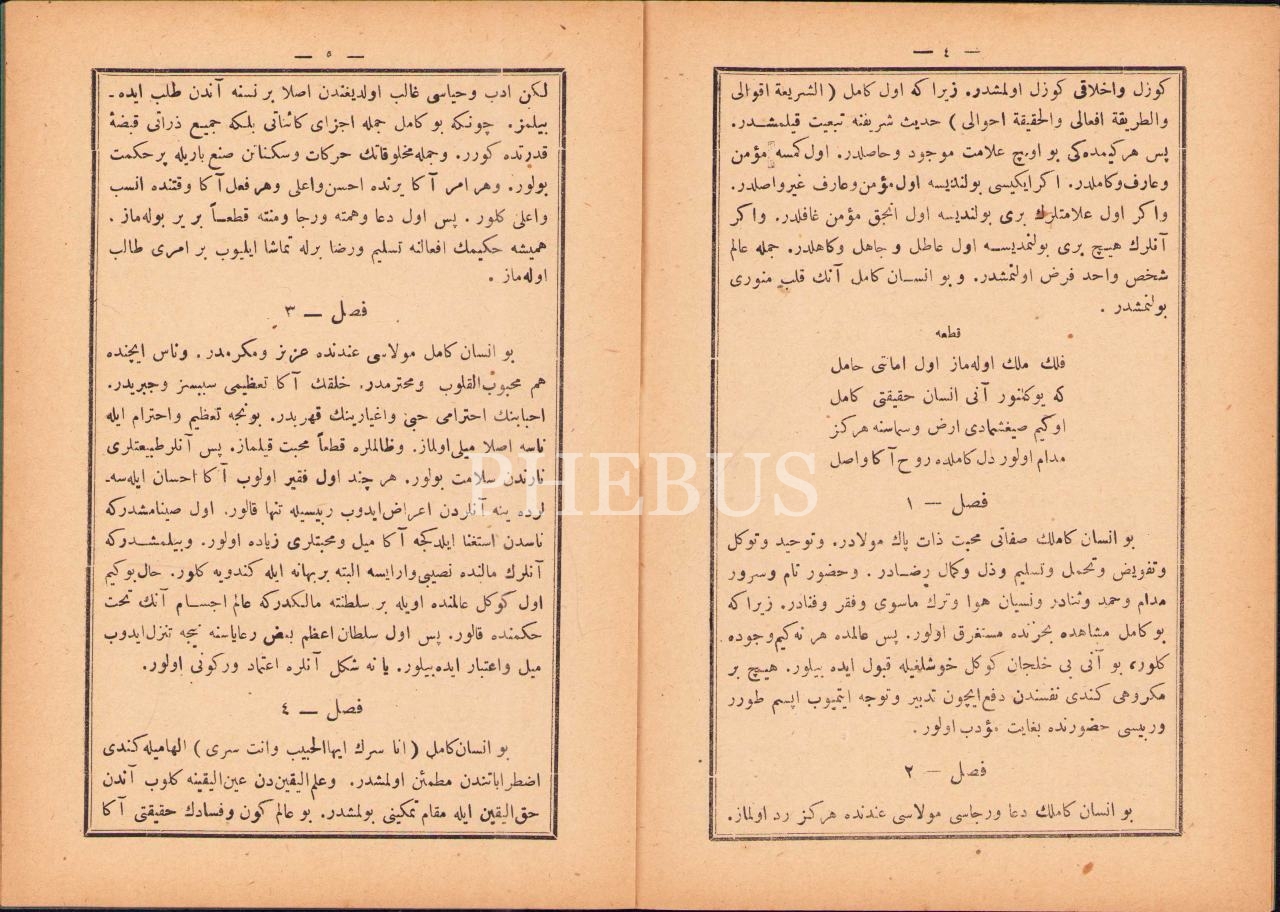 — ٤ —
كوزل واخلاقى كوزل اولمشدر. زيرا كه اول كامل (الشريعة اقوالى
والطريقة افعالى والحقيقة احوالى) حديث شريفنه تبعيت قيلمشدر.
پس هر كيمده كى بو اوچ علامت موجود وحاصلدر. اول كمسه مؤمن
وعارف وكاملدر. اكر ايكيسى بولنديسه اول مؤمن وعارف غير واصلدر.
واكر اول علامتلرك برى بولنديسه اول انجق مؤمن غافلدر. واكر
آنلرك هيچ برى بولنمديسه اول عاطل و جاهل وكاهلدر. جمله عالم
شخص واحد فرض اولنمشدر. و بو انسان كامل آنك قلب منورى
بولنمشدر .
قطعه
فلك ملك اوله ماز اول امانتى حامل
كه يوكلنور آنى انسان حقيقتى كامل
اوكيم صيغشمادى ارض وسماسنه هركز
مدام اولور دل كاملده روح آكا واصل
فصل — ١
بو انسان كاملك صفاتى محبت ذات پاك مولادر. وتوحيد وتوكل
وتفويض وتحمل وتسليم وذل وكمال رضادر . وحضور تام وسرور
مدام وحمد وثنادر ونسيان هوا وترك ماسوى وفقر وفنادر. زيرا كه
بو كامل مشاهده بحرنده مستغرق اولور. پس عالمده هر نه كيم وجوده
كلور، بو آنى بى خلجان كوكل خوشلغيله قبول ايده بيلور. هيچ بر
مكروهى كندى نفسندن دفع ايچون تدبير وتوجه ايتميوب اپسم طورر
وربيسى حضورنده بغايت مؤدب اولور .
فصل — ٢
بو انسان كاملك دعا ورجاسى مولاسى عندنده هركز رد اولماز.
— ٥ —
لكن ادب وحياسى غالب اولديغندن اصلا بر نسنه آندن طلب ايده -
بيلمز. چونكه بو كامل جمله اجزاى كائناتى بلكه جميع ذراتى قبضهٔ
قدرتده كورر. وجمله مخلوقاتك حركات وسكناتن صنع باريله پر حكمت
بولور. وهر امر آكا يرنده احسن واعلى وهر فعل آكا وقتنده انسب
واعلى كلور . پس اول دعا وهمته ورجا ومنته قطعاً بر ير بوله ماز .
هميشه حكيمك افعالنه تسليم ورضا برله تماشا ايليوب بر امرى طالب
اوله ماز .
فصل — ٣
بو انسان كامل مولاسى عندنده عزيز ومكرمدر. وناس ايچنده
هم محبوب القلوب ومحترمدر. خلقك آكا تعظيمى سببسز وجبريدر.
احبابنك احترامى حبى واغيارينك قهريدر. بونجه تعظيم واحترام ايله
ناسه اصلا ميلى اولماز. وظالملره قطعاً محبت قيلماز. پس آنلر طبيعتلرى
نارندن سلامت بولور. هر چند اول فقير اولوب آكا احسان ايله سه-
لرده ينه آنلردن اعراض ايدوب ربيسيله تنها قالور. اول صينامشدركه
ناسدن استغنا ايلدكجه آكا ميل ومحبتلرى زياده اولور. وبيلمشدركه
آنلرك مالنده نصيبى وارايسه البته بر بهانه ايله كندويه كلور. حال بوكيم
اول كوكل عالمنده اويله بر سلطنته مالكدركه عالم اجسام آنك تحت
حكمنده قالور. پس اول سلطان اعظم بعض رعاياسنه نيجه تنزل ايدوب
ميل واعتبار ايده بيلور. يا نه شكل آنلره اعتماد وركونى اولور.
فصل — ٤
بو انسان كامل (انا سرك ايها الحبيب وانت سرى) الهاميله كندى
اضطراباتندن مطمئن اولمشدر. وعلم اليقين دن عين اليقينه كلوب آندن
حق اليقين ايله مقام تمكينى بولمشدر. بو عالم كون وفسادك حقيقتى آكا
PHEBUS